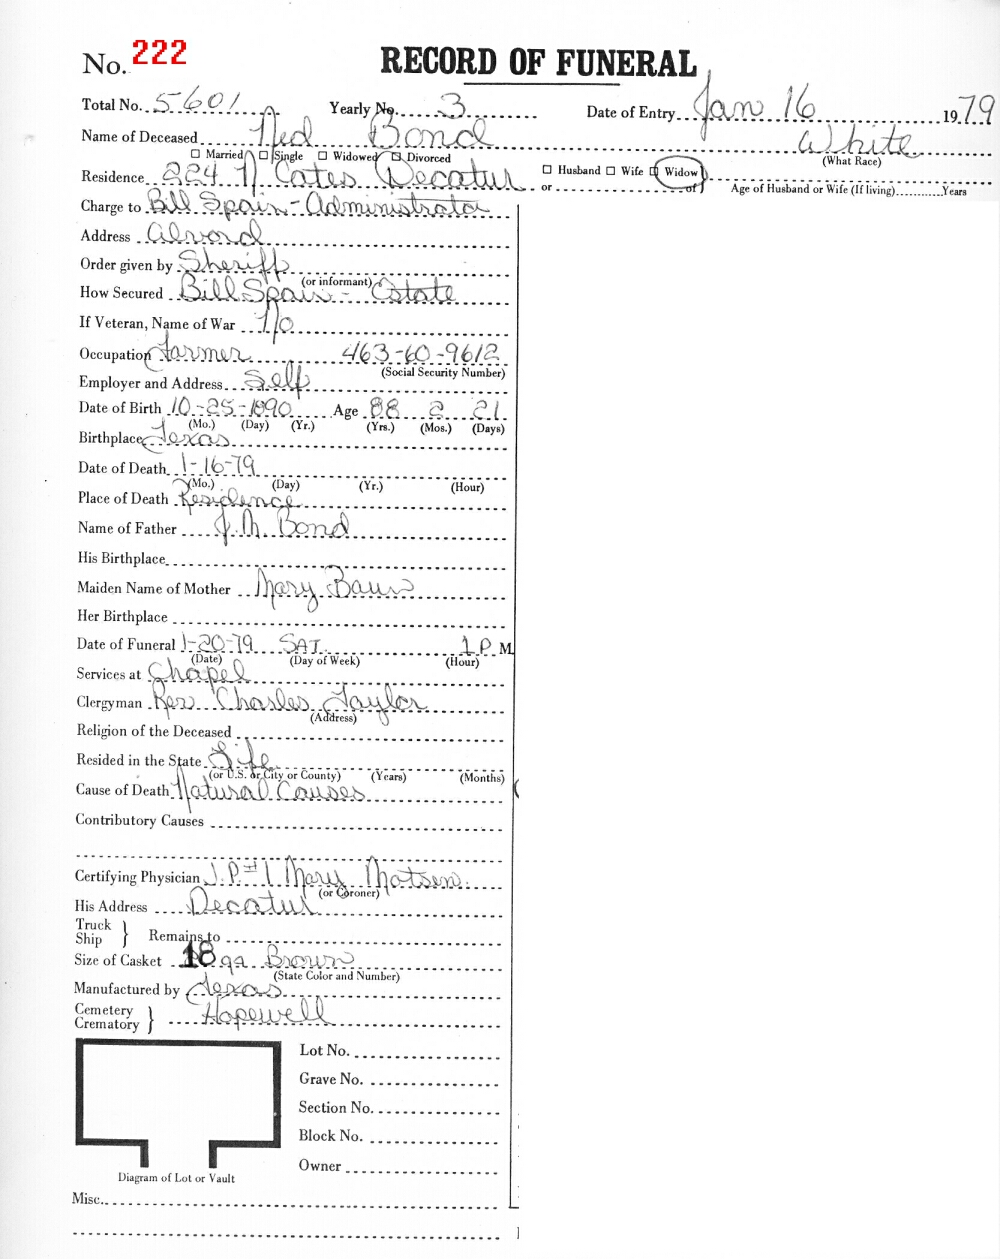 No. 222
RECORD OF FUNERAL
Total No. 5601 Yearly No. 3 Date of Entry Jan 16 1979
Name of Deceased Ned Bond White
☐ Married ☐ Single ☐ Widowed ☐ Divorced (What Race)
Residence 224 N Cates Decatur ☐ Husband ☐ Wife ☐ Widow
or of Age of Husband or Wife (If living) Years
Charge to Bill Spain - Administrator
Address Alvord
Order given by Sheriff
(or informant)
How Secured Bill Spain - Estate
If Veteran, Name of War No
Occupation Farmer 463-60-9612
(Social Security Number)
Employer and Address Self
Date of Birth 10-25-1890 Age 88 2 21
(Mo.) (Day) (Yr.) (Yrs.) (Mos.) (Days)
Birthplace Texas
Date of Death 1-16-79
(Mo.) (Day) (Yr.) (Hour)
Place of Death Residence
Name of Father J.M. Bond
His Birthplace
Maiden Name of Mother Mary
Her Birthplace
Date of Funeral 1-20-79 SAT. 1 P M
(Date) (Day of Week) (Hour)
Services at Chapel
Clergyman Rev Charles Taylor
(Address)
Religion of the Deceased
Resided in the State Life
(or U.S. or City or County) (Years) (Months)
Cause of Death Natural Causes
Contributory Causes
Certifying Physician J.P. #1 Mary Matsen
(or Coroner)
His Address Decatur
Truck
Ship } Remains to
Size of Casket 18 ga Brown
(State Color and Number)
Manufactured by Texas
Cemetery
Crematory } Hopewell
Lot No.
Grave No.
Section No.
Block No.
Owner
Diagram of Lot or Vault
Misc.